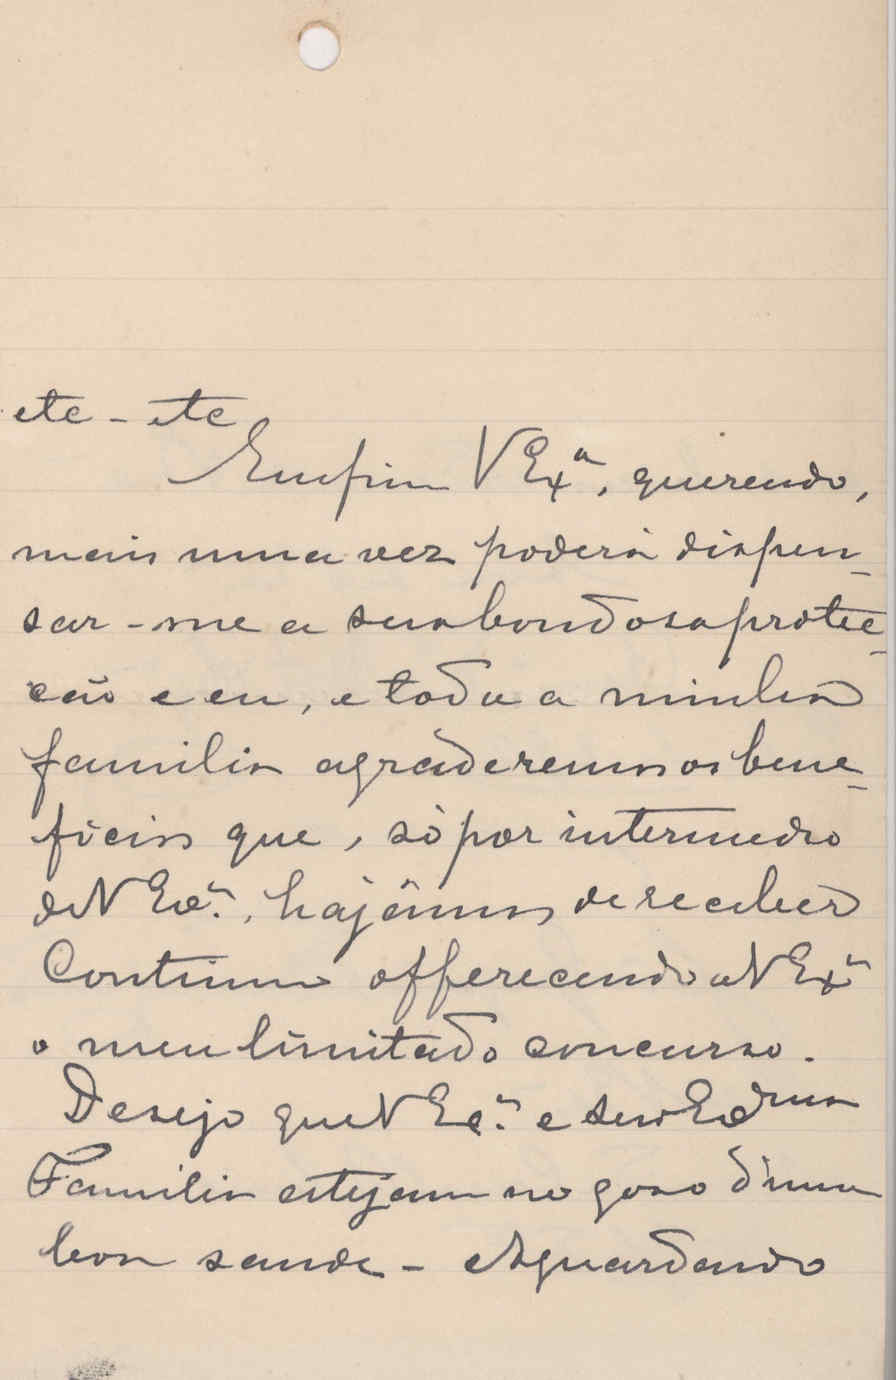 etc - etc
Emfim V Exª, querendo,
mais uma vez poderá dispen-
sar-me a sua bondosa protec-
ção e eu, e toda a minha
familia agraderemos os bene-
ficios que, só por intermedio
de V Exª., hajâmos de receber
Continuo offerecendo a V Exª
o meu limitado concurso.
Desejo que V Exª. e sua Exma
Familia estejam no goso d'uma
boa saude - Aguardando